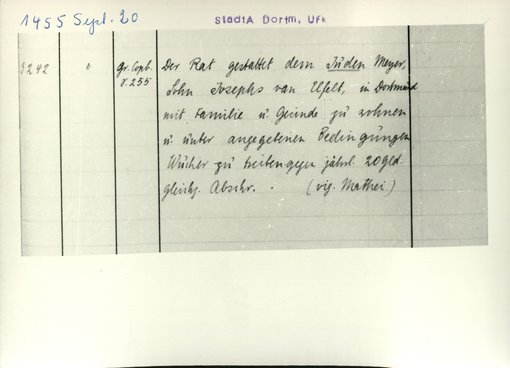 1455 Sept. 20
StadtA Dortm. Ufk
3242 " gr. Copb. Der Rat gestattet dem Juden Meyer,
r. 255 Sohn Josephs van Ulfelt, in Dortmund
mit Familie u. Gesinde zu wohnen
u. unter angegebenen Bedingungen
Wucher zu treiben gegen jährl. 20 gld.
gleichz. Abschr. . (vig. Mathei)